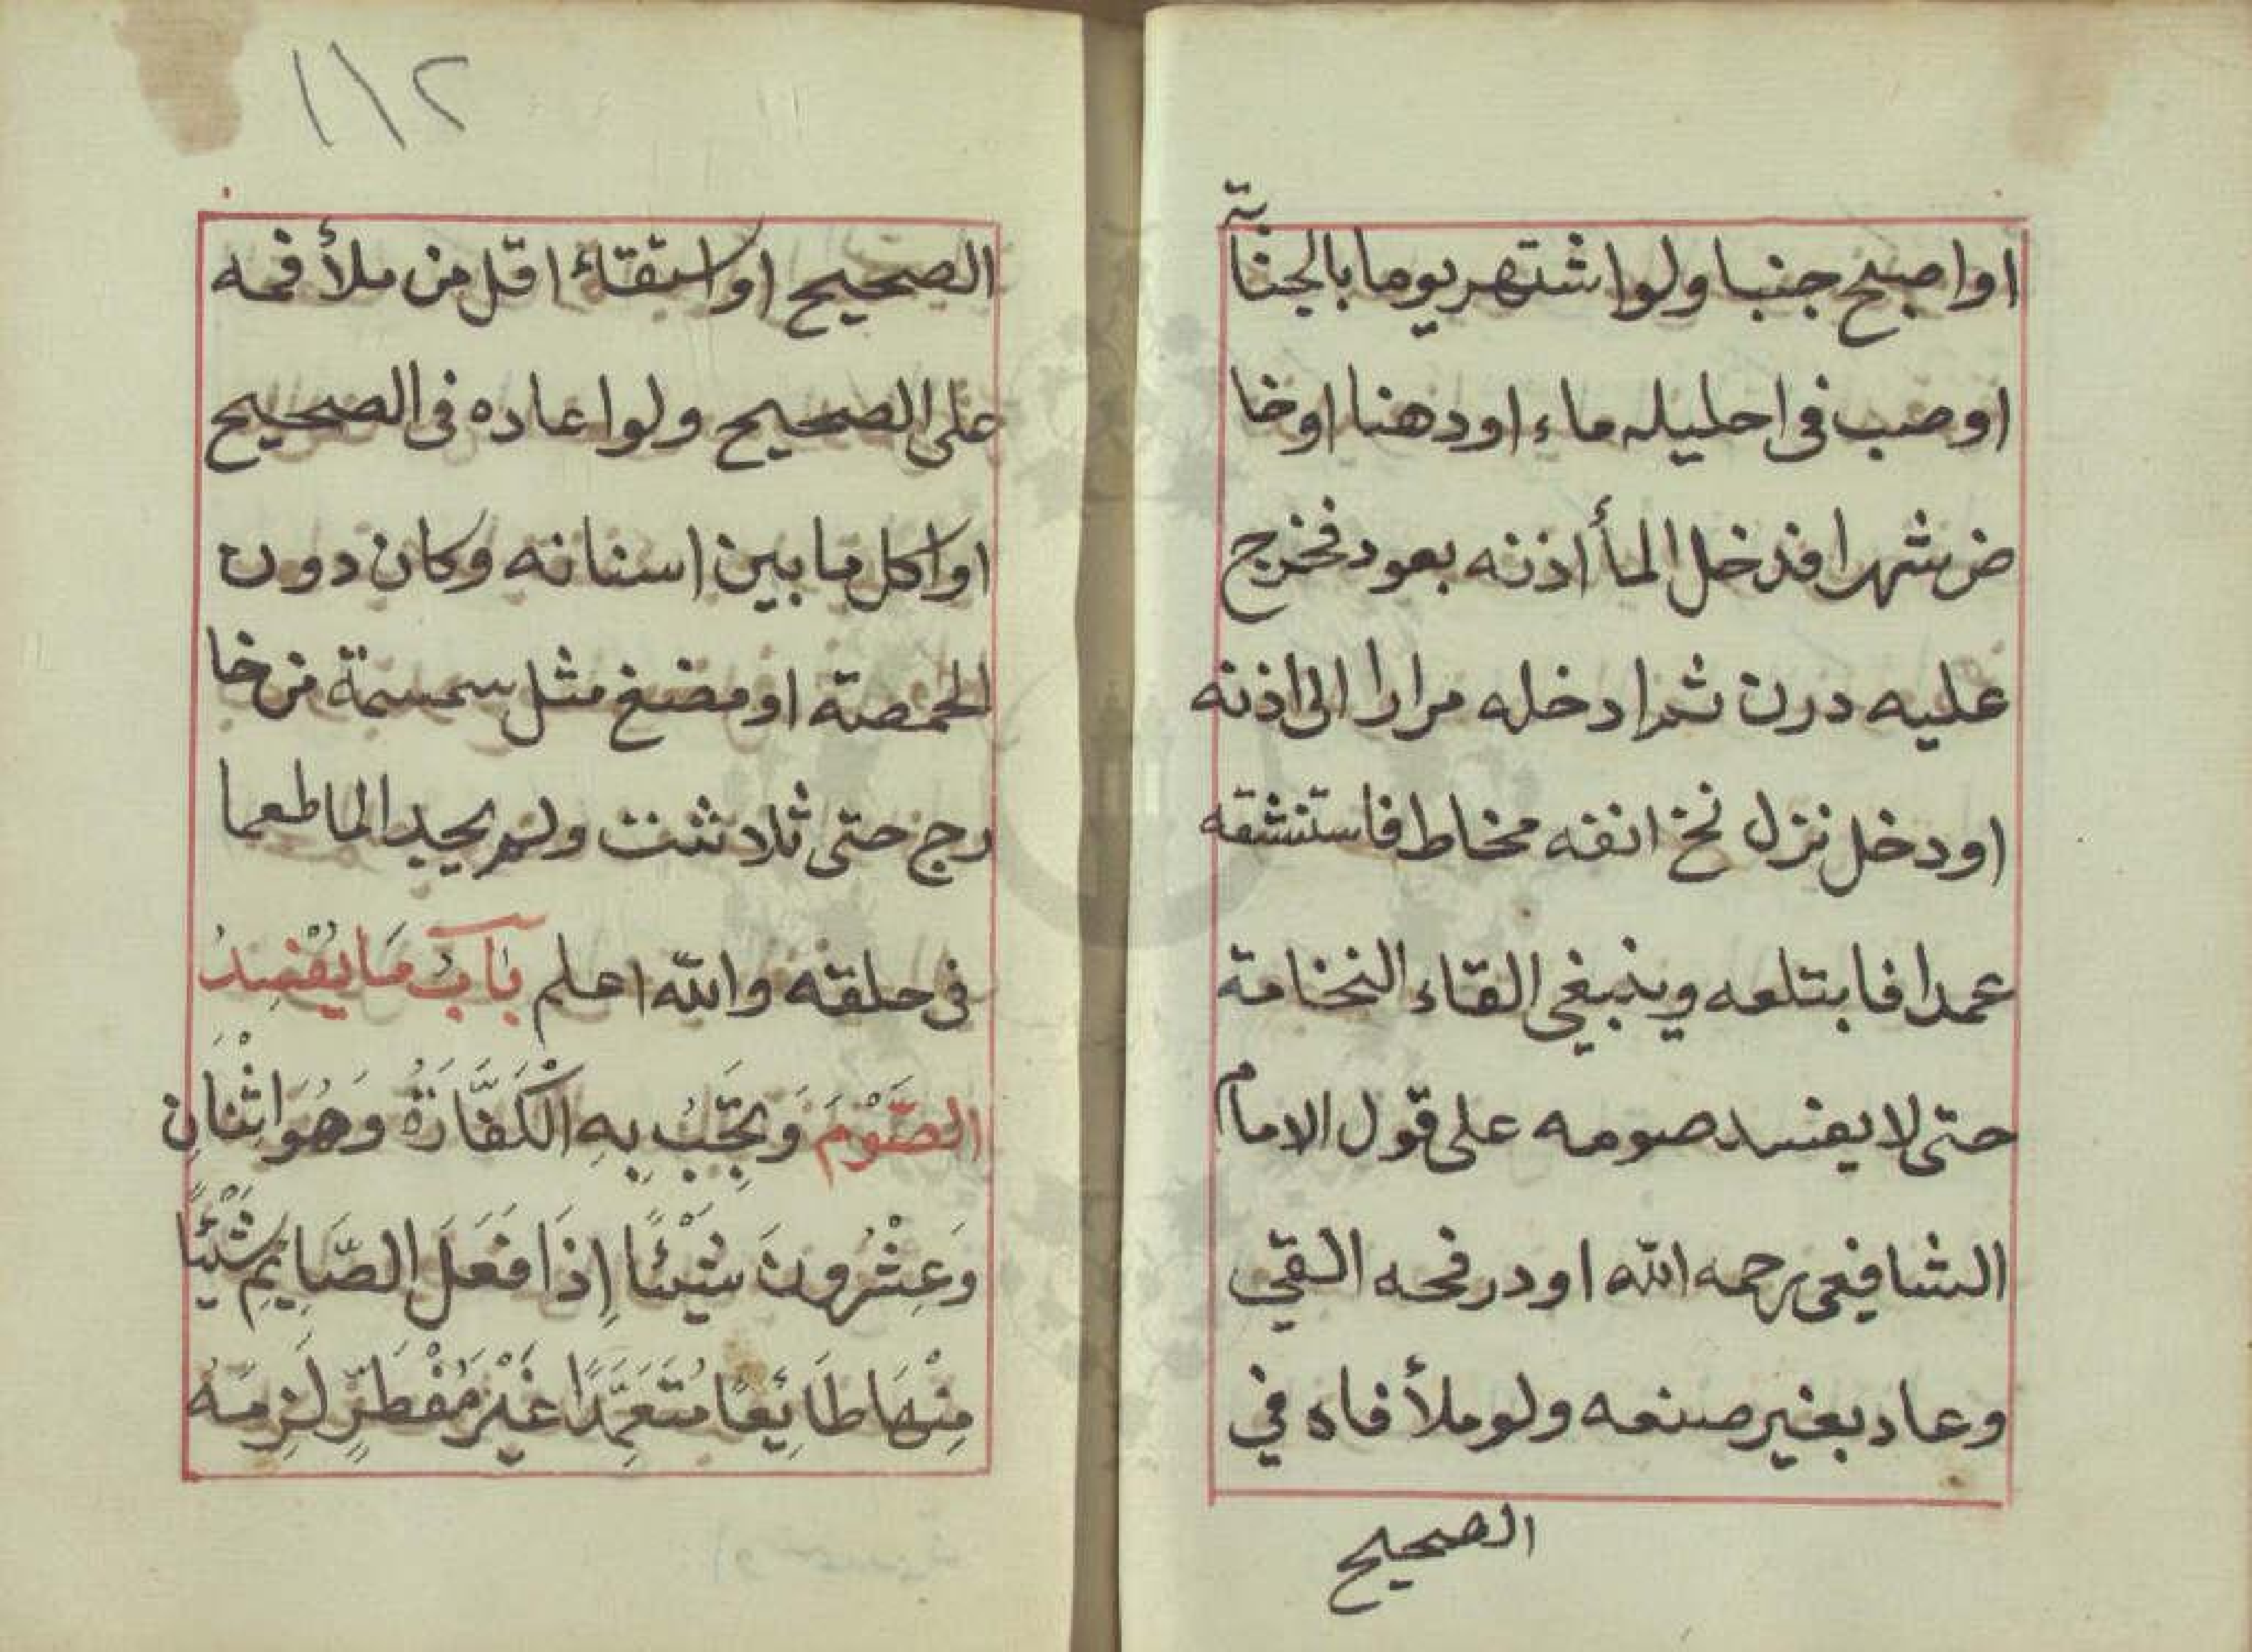 او اصبح جنبا ولو اشتهر يوما بالجنابة
او صب فى احليله ماء او دهنا او خا
ض شهرا فدخل المأ اذنه بعود فخرج
عليه درن ثم ادخله مرارا الى اذنه
او دخل نزل نخ انفه مخاط فاستنشقه
عمدا فابتلعه وينبغى القاء النخامة
حتى لا يفسد صومه على قول الامام
الشافيعى رحمه الله او در فحه القي
وعاد بغير صنعه ولو ملأ فاه في
الصحيح
١١٢
الصحيح او استقاء اقل من ملأ فمه
على الصحيح ولو اعاده فى الصحيح
او اكل ما بين اسنانه وكان دون
الحمصة او مضغ مثل سمسمة من خا
رج حتى ثلا شت ولم يجد الما طعما
فى حلقه والله اعلم بَابُ مَا يُفْسِدُ
الصَّوْمَ وَيَجِّبُ بِهِ الْكَفَّارَةُ وَهُوَ اثْنَانِ
وَعِشْرُونَ شَيْئًا إِذَا فَعَلَ الصَّايِمِ شَيْئًا
مِنْهَا طَايِعًا مُتَعَمِّدًا غَيْرَ مُفْطَرٍّ لَزِمَهُ